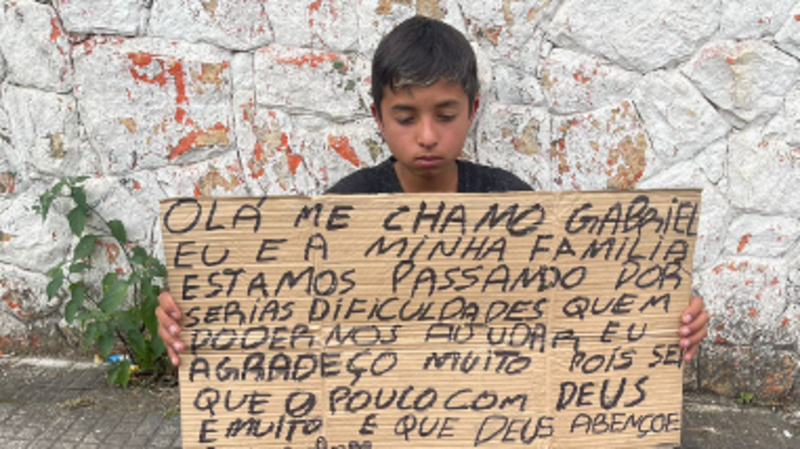 OLÁ ME CHAMO GABRIEL
EU E A MINHA FAMILIA
ESTAMOS PASSANDO POR
SERIAS DIFICULDADES QUEM
PODER NOS AJUDAR EU
AGRADEÇO MUITO POIS SEI
QUE O POUCO COM DEUS
E MUITO E QUE DEUS ABENÇOE